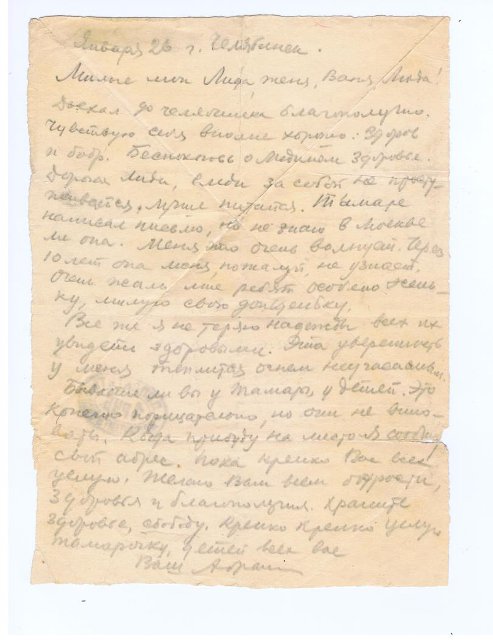 Января 26 г. Челябинск.
Милые мои Лида, Женя, Ваня, Люда!
Доехал до Челябинска благополучно.
Чувствую себя вполне хорошо: Здоров
и бодр. Беспокоюсь о Лидином здоровье.
Дорогая Лида, следи за собой не просту-
живайся, лучше питайся. Тамаре
написал письмо, но не знаю в Москве
ли она. Меня это очень волнует. Через
10 лет она меня, пожалуй, не узнает.
Очень жаль мне ребят особено Жень-
ку, милую свою
Все же я не теряю надежды всех их
увидеть здоровыми. Эта уверенность
у меня теплится огнем
Бываете ли вы у Тамары, у детей. Это
но они не вино-
ваты. Когда прибуду на место я сообщу
свой адрес. Пока крепко Вас всех
целую. Желаю Вам всем бодрости,
здоровья и благополучия. Храните
здоровье, свободу. Крепко крепко целую
Тамарочку, детей всех вас
Ваш